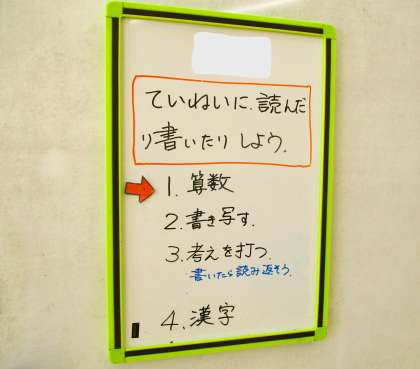 ていねいに、読んだ
り書いたりしよう。
1. 算数
2. 書き写す。
3. 考えを打つ。
書いたら読み返そう。
4. 漢字